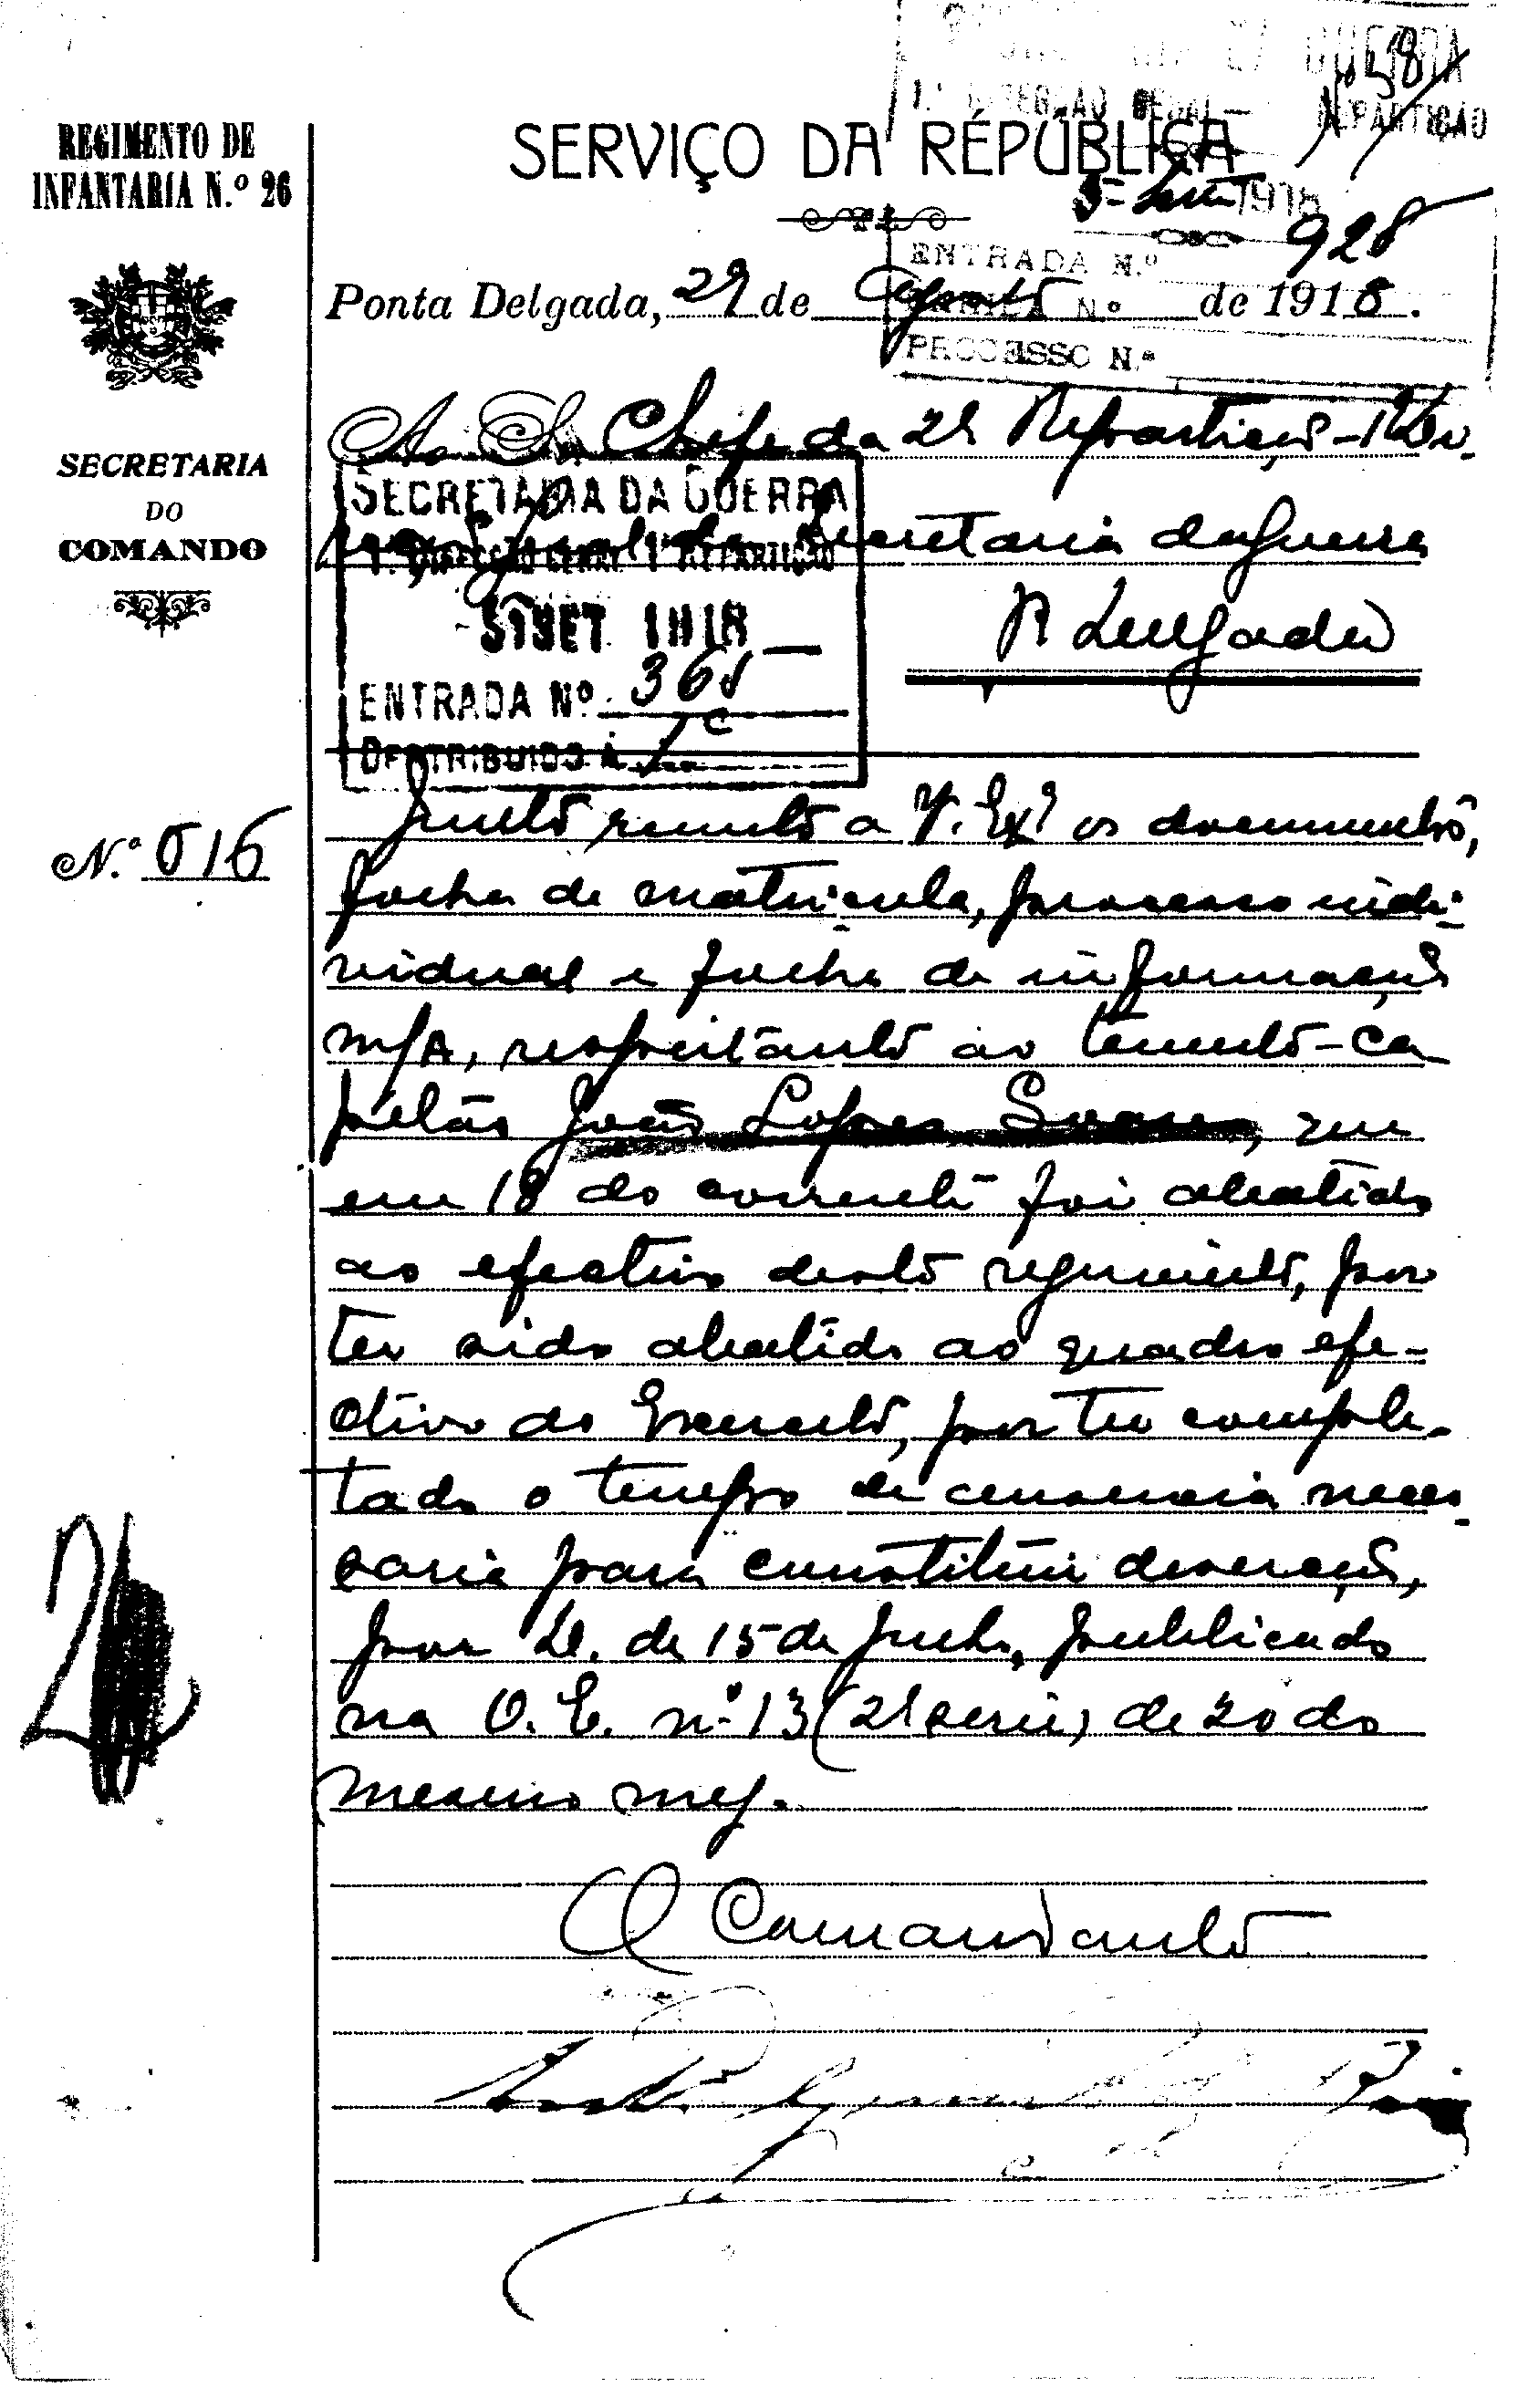 REGIMENTO DE
INFANTARIA N.º 26
SECRETARIA
DO
COMANDO
N.º 516
SERVIÇO DA RÉPÚBLICA
1918
928
ENTRADA N.º
PROCESSO N.º
Ponta Delgada, 29 de Agosto de 1918.
Ao Sr. Chefe da 2ª Repartição - 1ª Di-
Secretaria da Guerra
SECRETARIA DA GUERRA
1.ª DIRECÇÃO GERAL 1ª REPARTIÇÃO
SET 1918
ENTRADA Nº 365
DESTRIBUIDO Á
Junto remeto a V. Exª os documentos,
folha de matricula, processo indi-
vidual e folha de informação
m/A, respeitante ao tenente-ca-
pelão João Lopes Soares, que
em 18 do corrente foi abatido
ao efectivo deste regimento, por
ter sido abatido ao quadro efe-
ctivo do Exercito, por ter comple-
tado o tempo de ausencia neces-
saria para constituir deserção,
por D. de 15 de Julho, publicado
na O. E. nº 13 (2ª serie) de 20 do
mesmo mez.
O Comandante